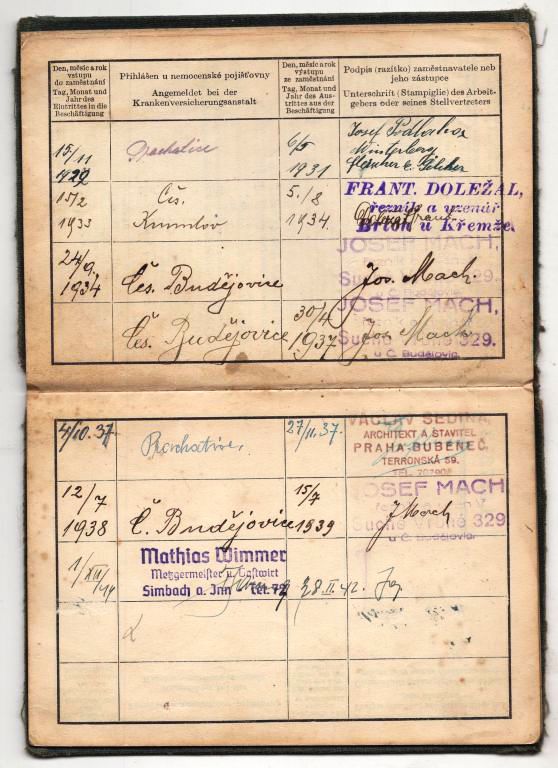 Den, měsíc a rok
vstupu
do zaměstnání
Tag, Monat und
Jahr des
Eintrittes in die
Beschäftigung
Přihlášen u nemocenské pojišťovny
Angemeldet bei der
Krankenversicherungsanstalt
Den, měsíc a rok
výstupu
ze zaměstnání
Tag, Monat und
Jahr des Aus-
trittes aus der
Beschäftigung
Podpis (razítko) zaměstnavatele neb
jeho zástupce
Unterschrift (Stampiglie) des Arbeit-
gebers oder seines Stellvertreters
15/11
1929
Prachatice
6/5
1931
Josef
Winterberg
15/2
1933
Čes.
Krumlov
5./8
1934.
FRANT. DOLEŽAL,
řezník a uzenář
Brloh u Křemže.
24/9.
1934
Čes. Budějovice
JOSEF MACH,
Suché Vrbné 329.
Jos. Mach.
Čes. Budějovice
30/4
1937
JOSEF MACH,
Suché Vrbné 329.
u Č. Budějovic.
Jos Mach
4/10. 37.
Prachatice,
27/11. 37.
VÁCLAV SEDINA,
ARCHITEKT A STAVITEL
PRAHA-BUBENEČ,
TERRONSKÁ 59.
12/7
1938
Č. Budějovice
15/7
1939
JOSEF MACH
Suché Vrbné 329
u Č. Budějovic.
J Mach
1/XII/41
Mathias Wimmer
Metzgermeister u. Gastwirt
Simbach a. Inn Tel. 72
28 II. 42.